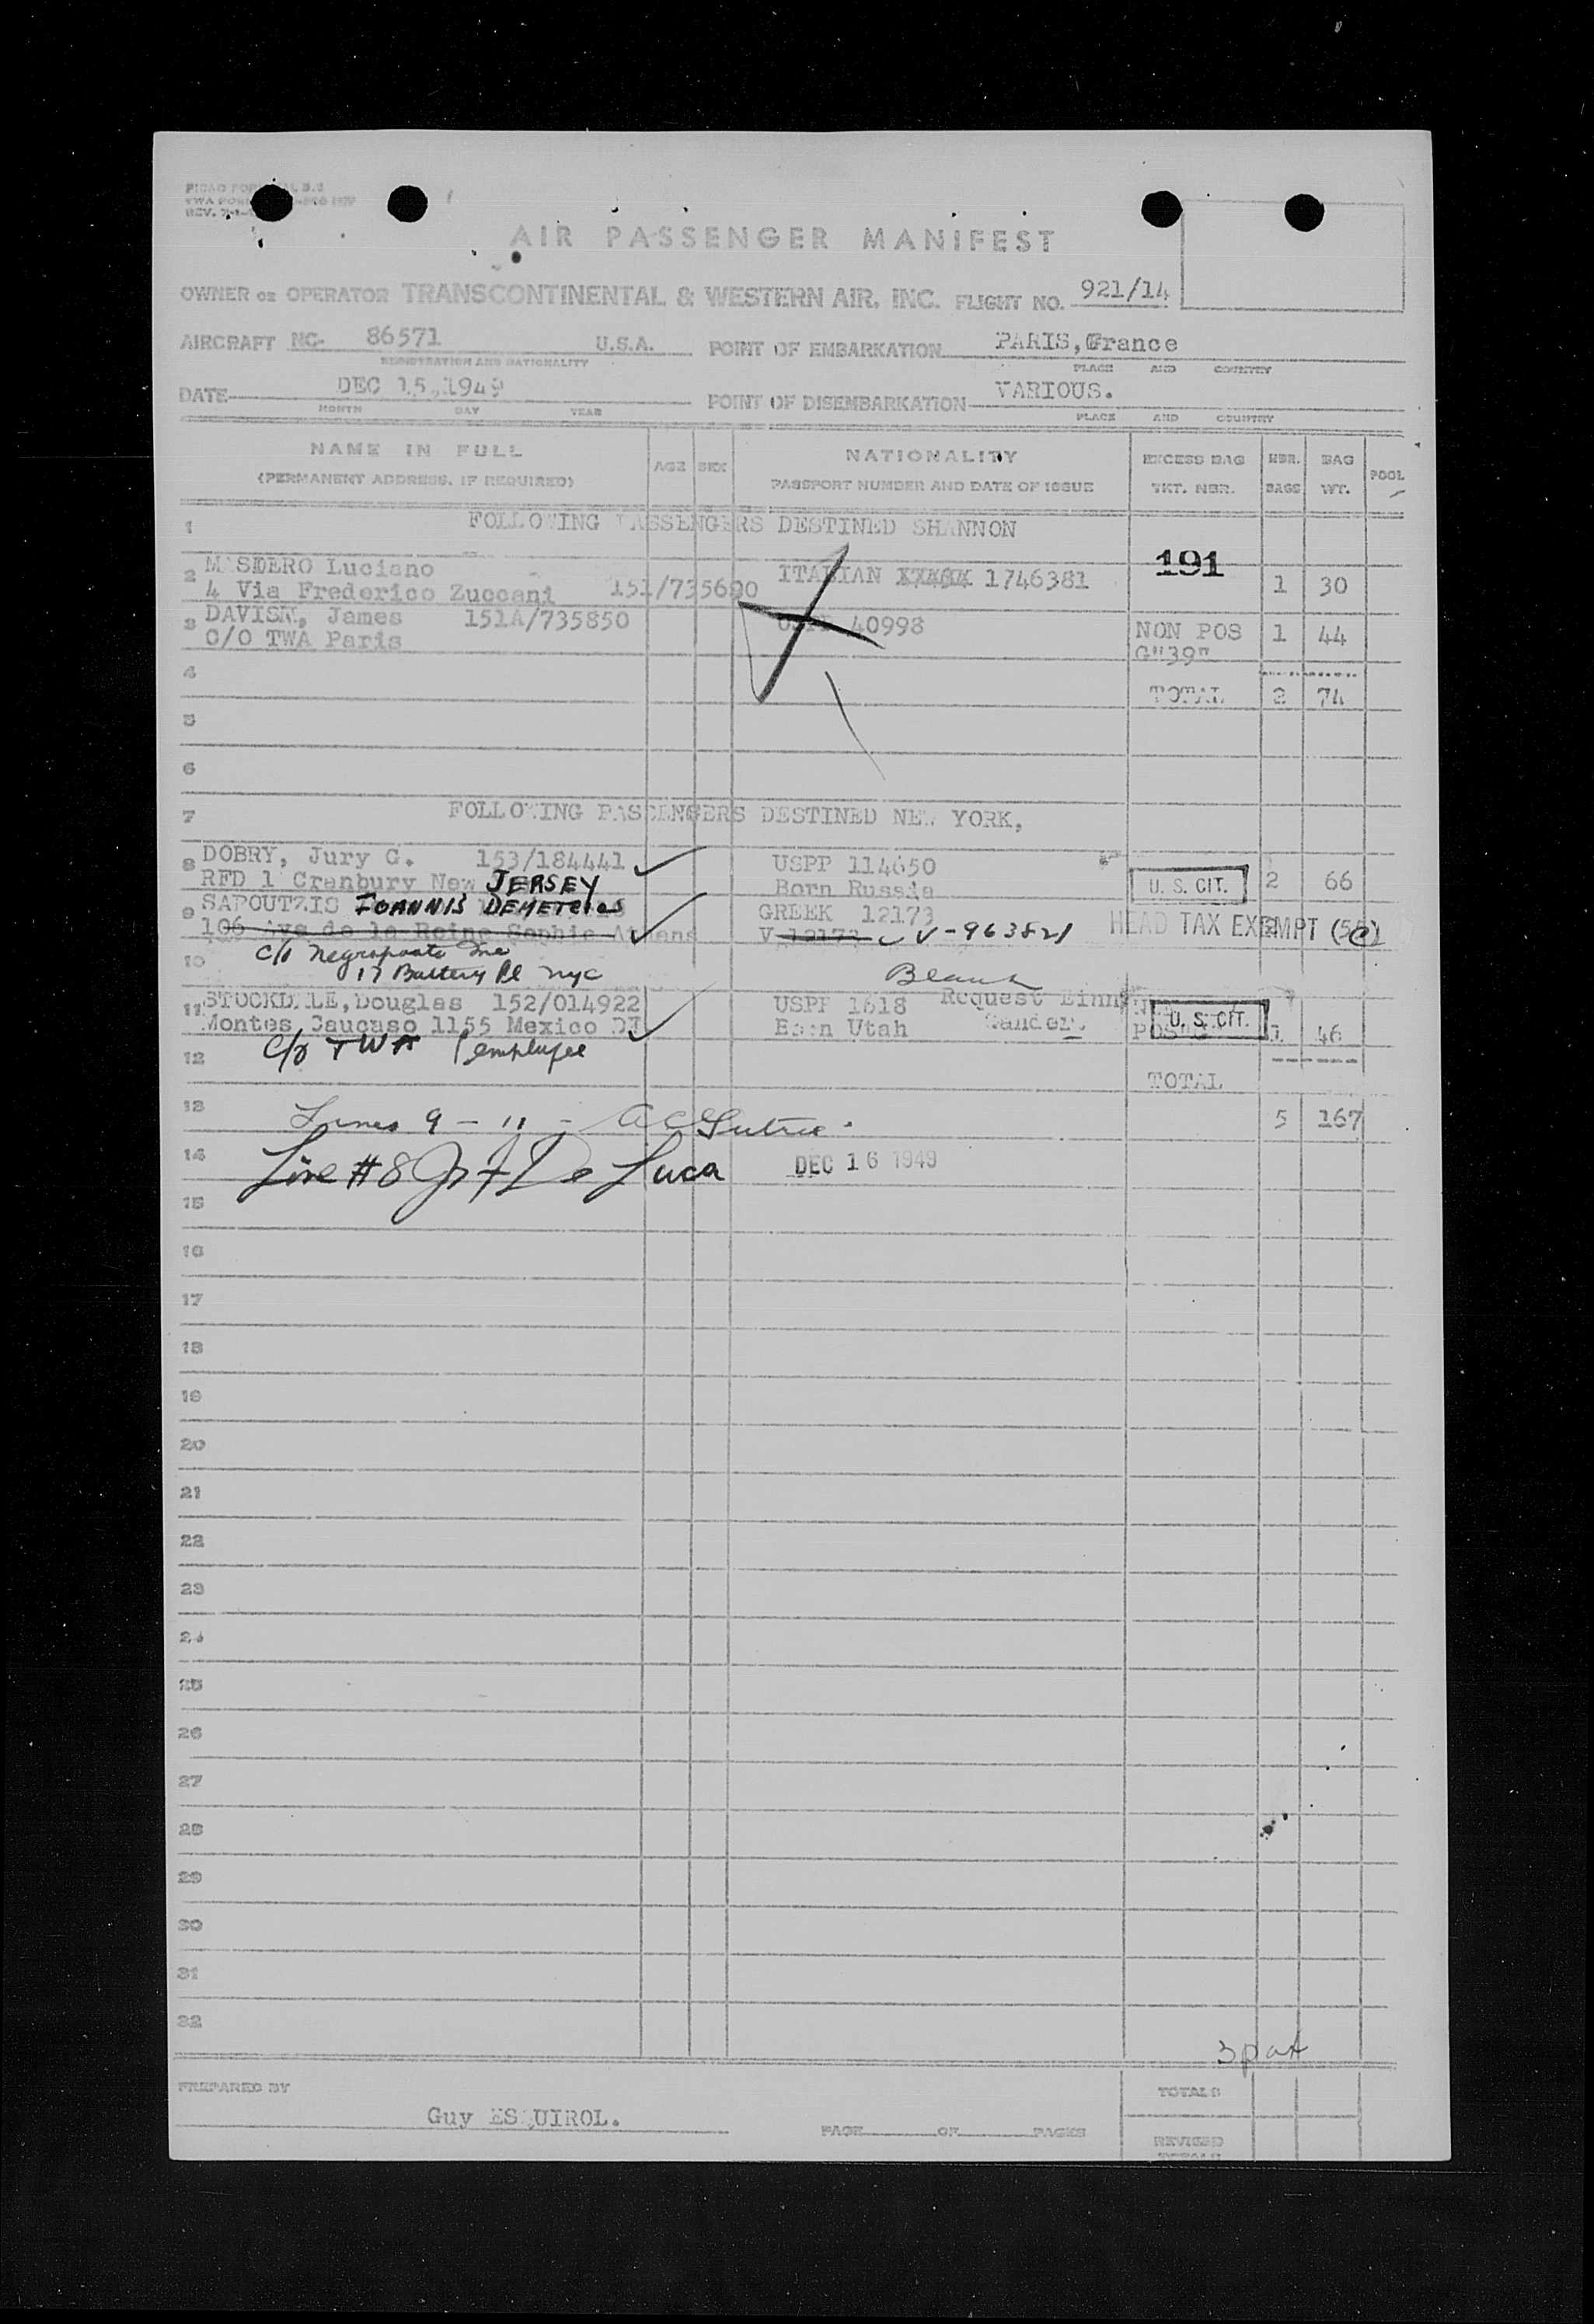 AIR PASSENGER MANIFEST
OWNER OR OPERATOR TRANSCONTINENTAL & WESTERN AIR, INC. FLIGHT NO. 921/14
AIRCRAFT NC- 86571 U.S.A. POINT OF EMBARKATION PARIS, France
REGISTRATION AND NATIONALITY PLACE AND COUNTRY
DATE DEC 15,1949 POINT OF DISEMBARKATION VARIOUS.
MONTH DAY YEAR PLACE AND COUNTRY
NAME IN FULL
(PERMANENT ADDRESS, IF REQUIRED)
AGE SEX
NATIONALITY
PASSPORT NUMBER AND DATE OF ISSUE
EXCESS BAG
TKT. NBR.
NBR.
BAGS
BAG
WT.
POOL
1 FOLLOWING PASSENGERS DESTINED SHANNON
191
2 Luciano ITALIAN 1746381 1 30
4 Via Frederico Zuccani 151/735600
3 James 151A/735850 40998 NON POS 1 44
C/O TWA Paris G"39"
4 TOTAL 2 74
5
6
7 FOLLOWING PASSENGERS DESTINED NEW YORK,
8 DOBRY, Jury G. 153/184441 USPP 114650
RFD 1 Cranbury New JERSEY Born Russia U. S. CIT. 2 66
9 SAPOUTZIS IOANNIS DEMETRIOS GREEK 12173
106 Ave de la Reine Sophie Athens V 12173 V-963821 HEAD TAX EXEMPT
10 c/o Negroponte Inc
17 Battery Pl NYC
11 STOCKDALE, Douglas 152/014922 USPP 1618 Request
Montes Caucaso 1155 Mexico Born Utah U. S. CIT. 1 46
12 c/o TWA employee
TOTAL
13 Lines 9 - 11 - 5 167
14 Line #8 De Luca DEC 16 1949
15
16
17
18
19
20
21
22
23
24
25
26
27
28
29
30
31
32
PREPARED BY TOTALS
Guy ESQUIROL. PAGE OF PAGES
REVISED
TOTALS